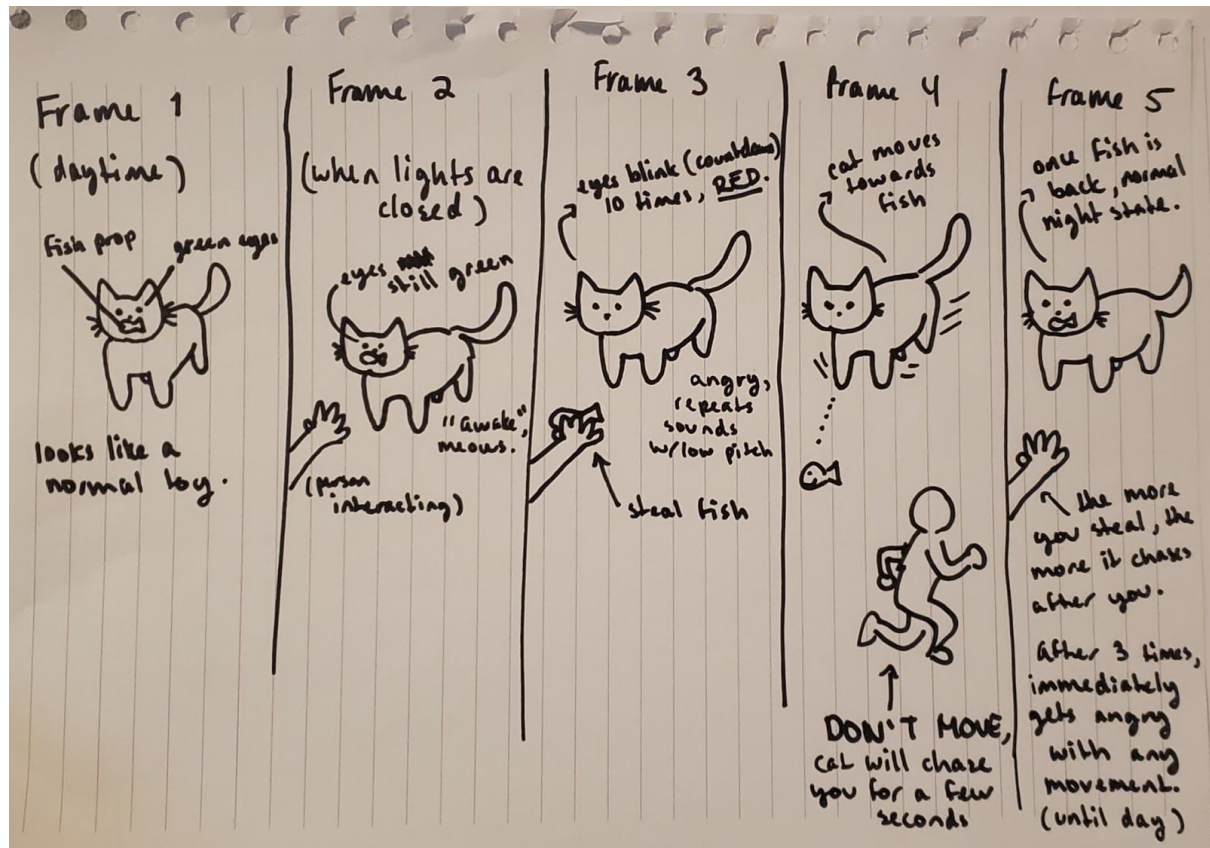 Frame 1
(daytime)
fish prop
green eyes
looks like a
normal toy.
Frame 2
(when lights are
closed)
eyes
still green
"awake",
meows.
(person
interacting)
Frame 3
eyes blink (countdown)
10 times, RED.
angry,
repeats
sounds
w/low pitch
steal fish
Frame 4
cat moves
towards
fish
DON'T MOVE,
cat will chase
you for a few
seconds
Frame 5
once fish is
back, normal
night state.
the more
you steal, the
more it chases
after you.
After 3 times,
immediately
gets angry
with any
movement.
(until day)